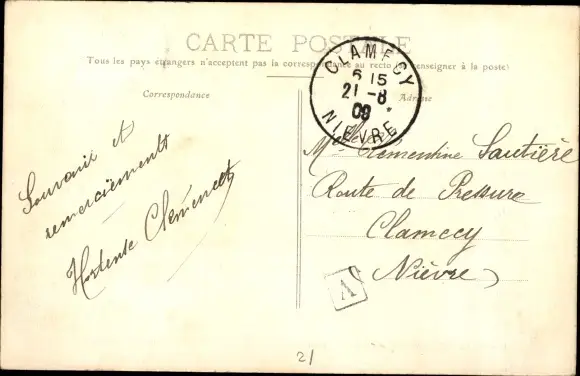 CARTE POSTALE
Tous les pays étrangers n'acceptent pas la correspondance au recto (se renseigner à la poste)
Correspondance
Adresse
CLAMECY
6 15
21 -8
09
NIÈVRE
Souvenir et
remerciements
Hortense Clémencet
Mlle Clémentine Sautière
Route de Pressure
Clamecy
Nièvre
A
21